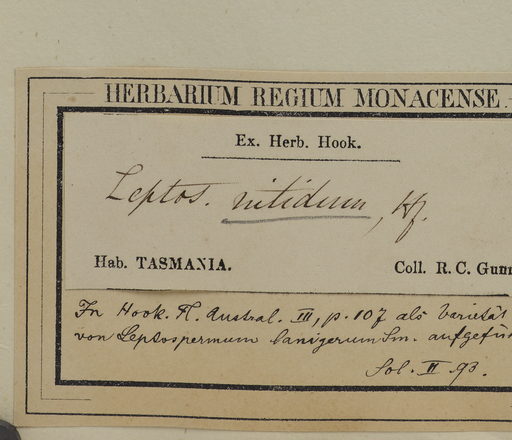 HERBARIUM REGIUM MONACENSE.
Ex. Herb. Hook.
Leptos. nitidum, Hf.
Hab. TASMANIA. Coll. R. C. Gunn
In Hook. Fl. Austral. III, p. 107 als Varietät
von Leptospermum lanigerum Sm. aufgefüh
Sol. II 93.